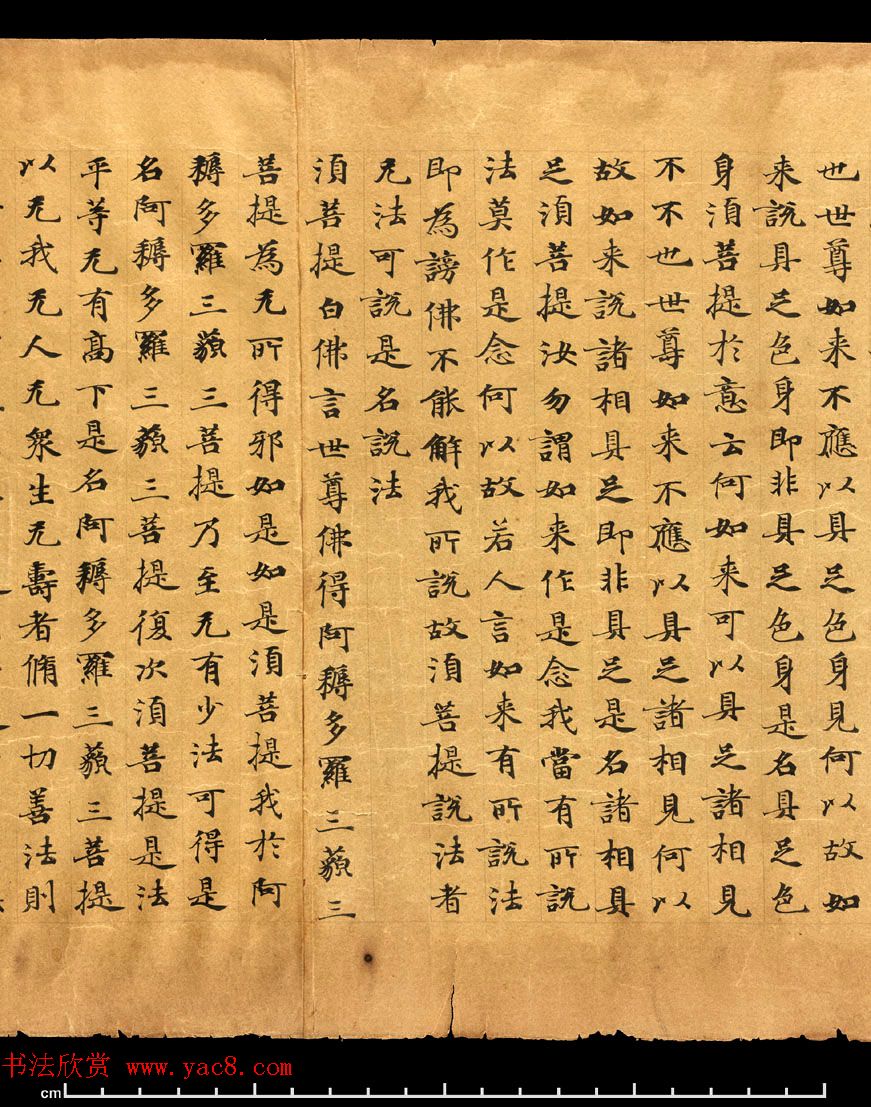 也世尊如来不應以具足色身見何以故如
来説具足色身即非具足色身是名具足色
身湏菩提於意云何如来可以具足諸相見
不不也世尊如来不應以具足諸相見何以
故如来説諸相具足即非具足是名諸相具
足湏菩提汝勿謂如来作是念我當有所説
法莫作是念何以故若人言如来有所説法
即為謗佛不能解我所説故湏菩提説法者
无法可説是名説法
湏菩提白佛言世尊佛得阿耨多羅三藐三
菩提為无所得邪如是如是湏菩提我於阿
耨多羅三藐三菩提乃至无有少法可得是
名阿耨多羅三藐三菩提復次湏菩提是法
平等无有髙下是名阿耨多羅三藐三菩提
以无我无人无衆生无壽者脩一切善法則
书法欣赏 www.yac8.com
cm